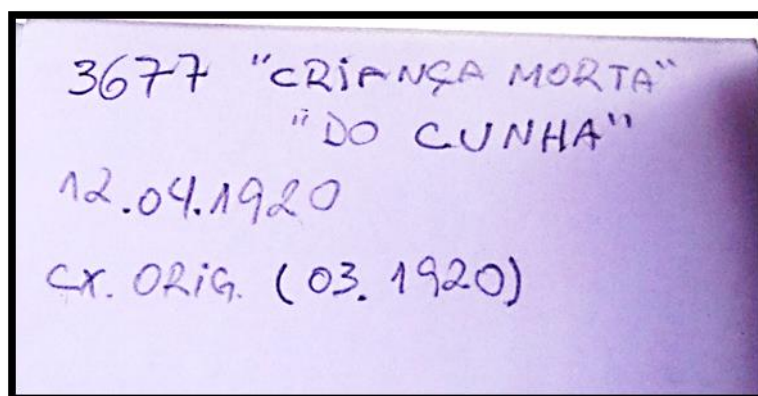 3677 "CRIANÇA MORTA"
"DO CUNHA"
12.04.1920
CX. ORIG. (03.1920)